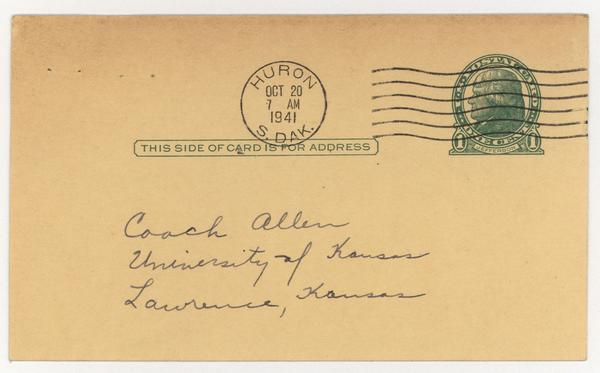 HURON
OCT 20
7 AM
1941
S. DAK.
THIS SIDE OF CARD IS FOR ADDRESS
U.S. POSTAL CARD
1 JEFFERSON 1
ONE CENT
Coach Allen
University of Kansas
Lawrence, Kansas